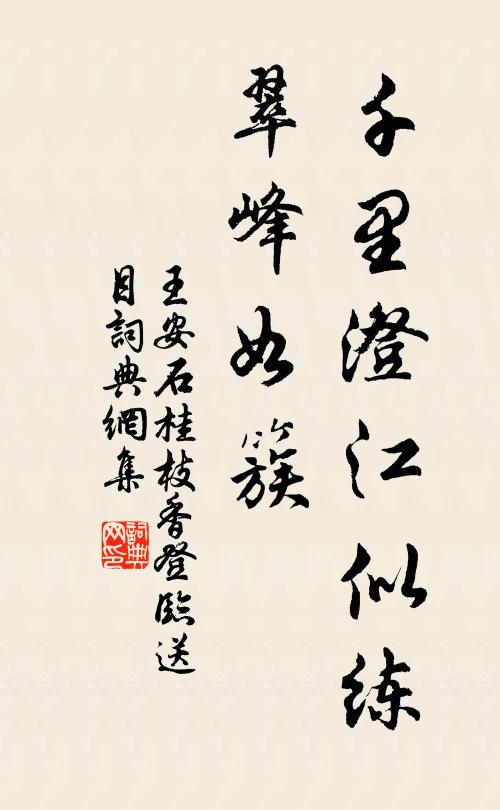 千里澄江似练
翠峰如簇
王安石桂枝香登臨送
目詞典網集
詞典网印